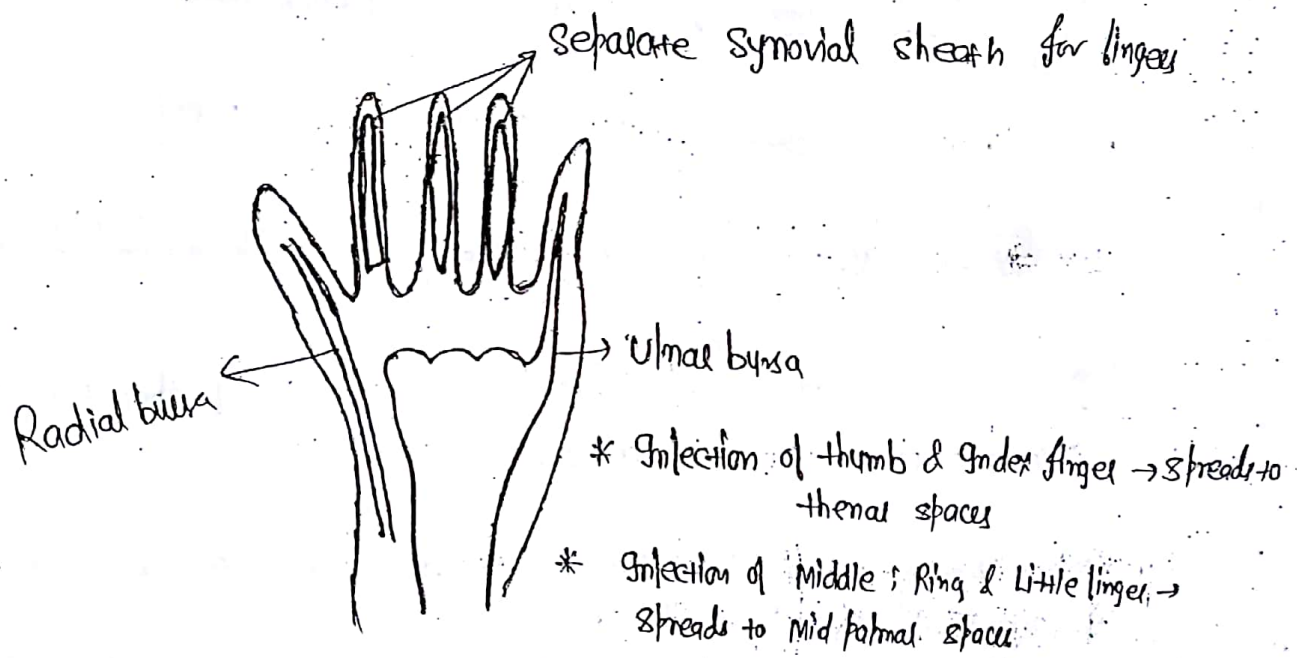 Separate Synovial sheath for fingers
Ulnar bursa
Radial bursa
* Infection of thumb & Index finger → spreads to
thenar spaces
* Infection of Middle ; Ring & Little finger →
spreads to Mid palmar spaces